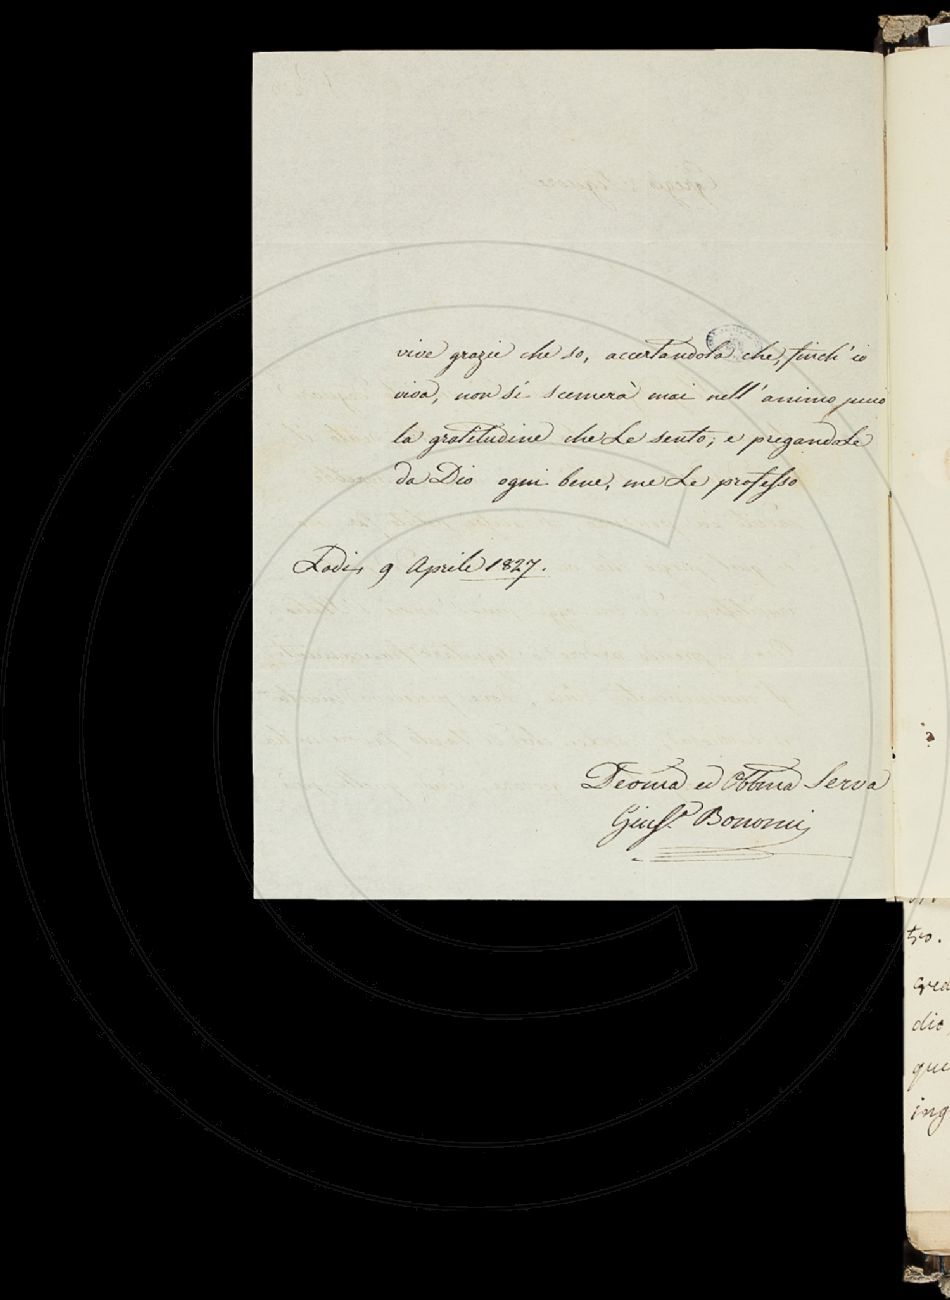 vive grazie che so, accertandola che, finch'io
viva, non si scemerà mai nell'animo mio
la gratitudine che Le sento; e pregandole
da Dio ogni bene, me Le professo
Lodi, 9 Aprile 1827.
Devma ed Obbma Serva
Giusa. Bonomi
tro.
cred
dic
que
ing